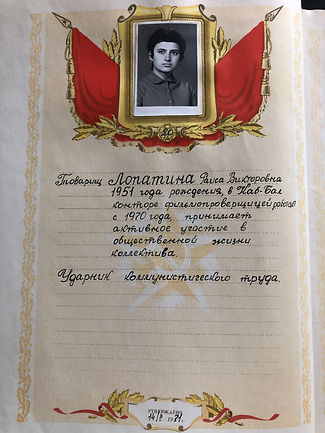 Товарищ Лопатина Раиса Викторовна
1951 года рождения, в Каб-Бал
конторе фильмопроверщицей работает
с 1970 года, принимает
активное участие в
общественной жизни
коллектива.
Ударник коммунистического труда.
УТВЕРЖДЕНО
1971